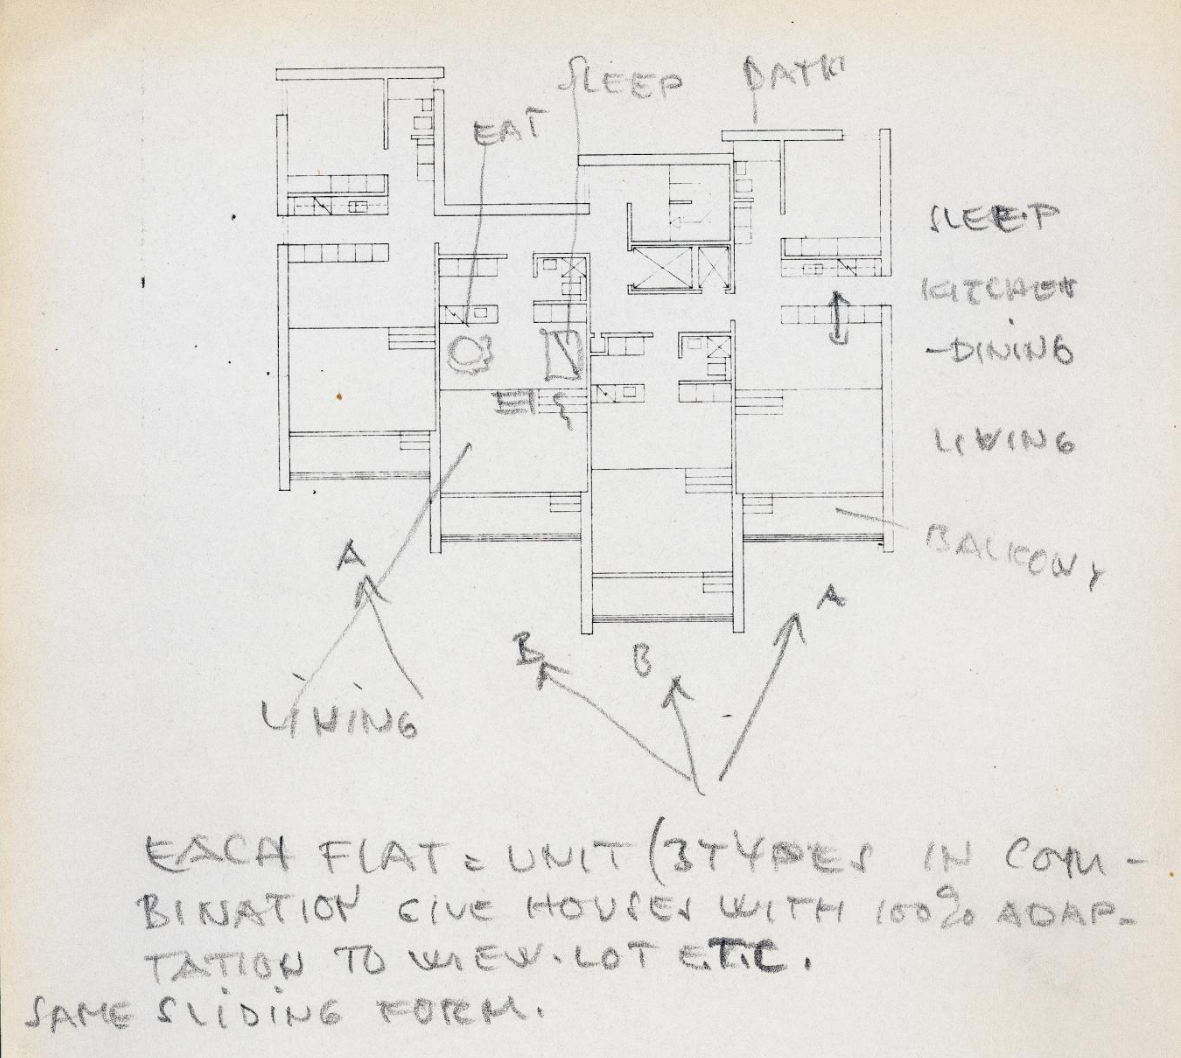 SLEEP BATH
EAT
SLEEP
KITCHEN
-DINING
LIVING
BALKONY
A
A
B
B
LIVING
EACH FLAT = UNIT (3 TYPES IN COM-
BINATION GIVE HOUSES WITH 100% ADAP-
TATION TO VIEW. LOT ETC.
SAME SLIDING FORM.